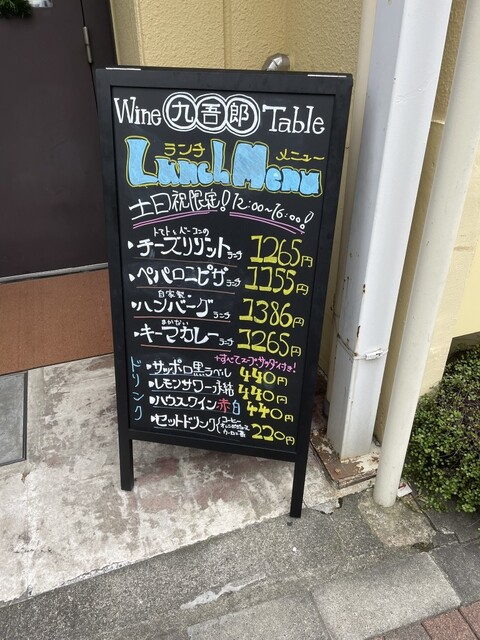 Wine 九吾郎 Table
ランチ メニュー
Lunch Menu
土日祝限定! 12:00~16:00!
トマトとベーコンの
・チーズリゾットランチ 1265円
・ペパロニピザランチ 1155円
自家製
・ハンバーグランチ 1386円
まかない
・キーマカレーランチ 1265円
+すべてスープ、サラダ付き!
ドリンク
・サッポロ黒ラベル 440円
・レモンサワー氷結 440円
・ハウスワイン赤白 440円
・セットドリンク(コーヒー オレンジジュース ウーロン茶 220円